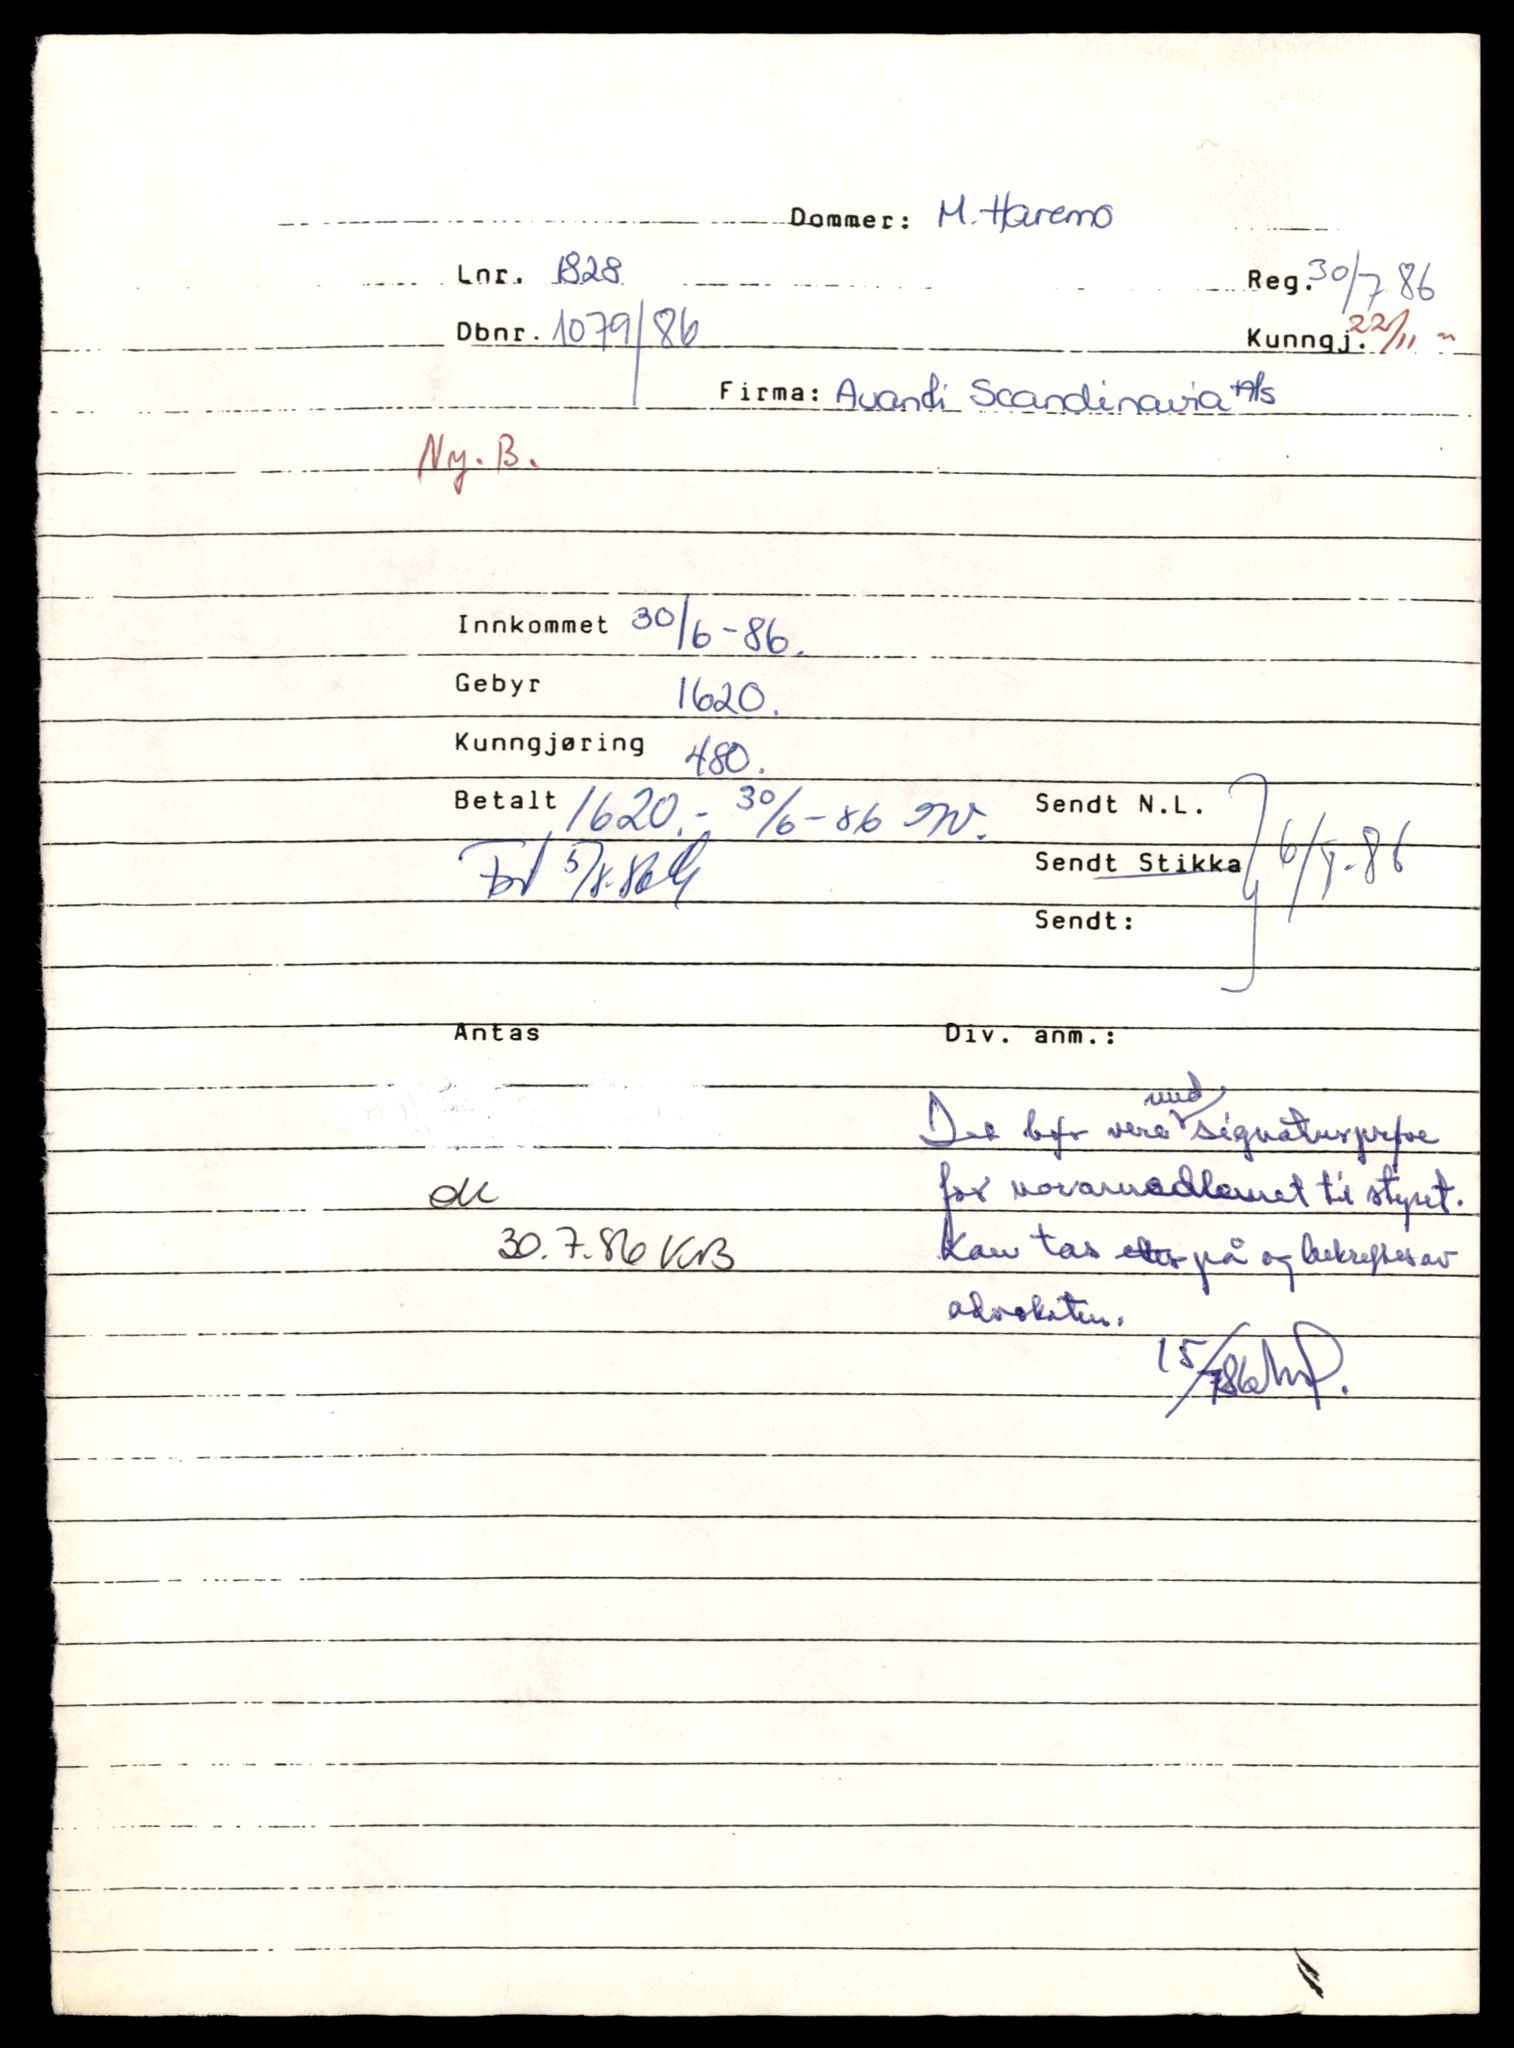 Dommer: M. Haremo
Lnr. 1828
Reg. 30/7 86
Dbnr. 1079/86
Kunngj. 22/11 "
Firma: Avandi Scandinavia A/S
Ny. B.
Innkommet 30/6-86.
Gebyr 1620.
Kunngjøring 480.
Betalt 1620.- 30/6-86
Sendt N.L.
5/8-86
Sendt Stikka 6/8-86
Sendt:
Antas
Div. anm.:
Det bør vere med signaturprøve
for varamedlemet til styret.
ok
Kan tas på og bekreftes av
30.7.86 KB
advokaten.
15/7 86